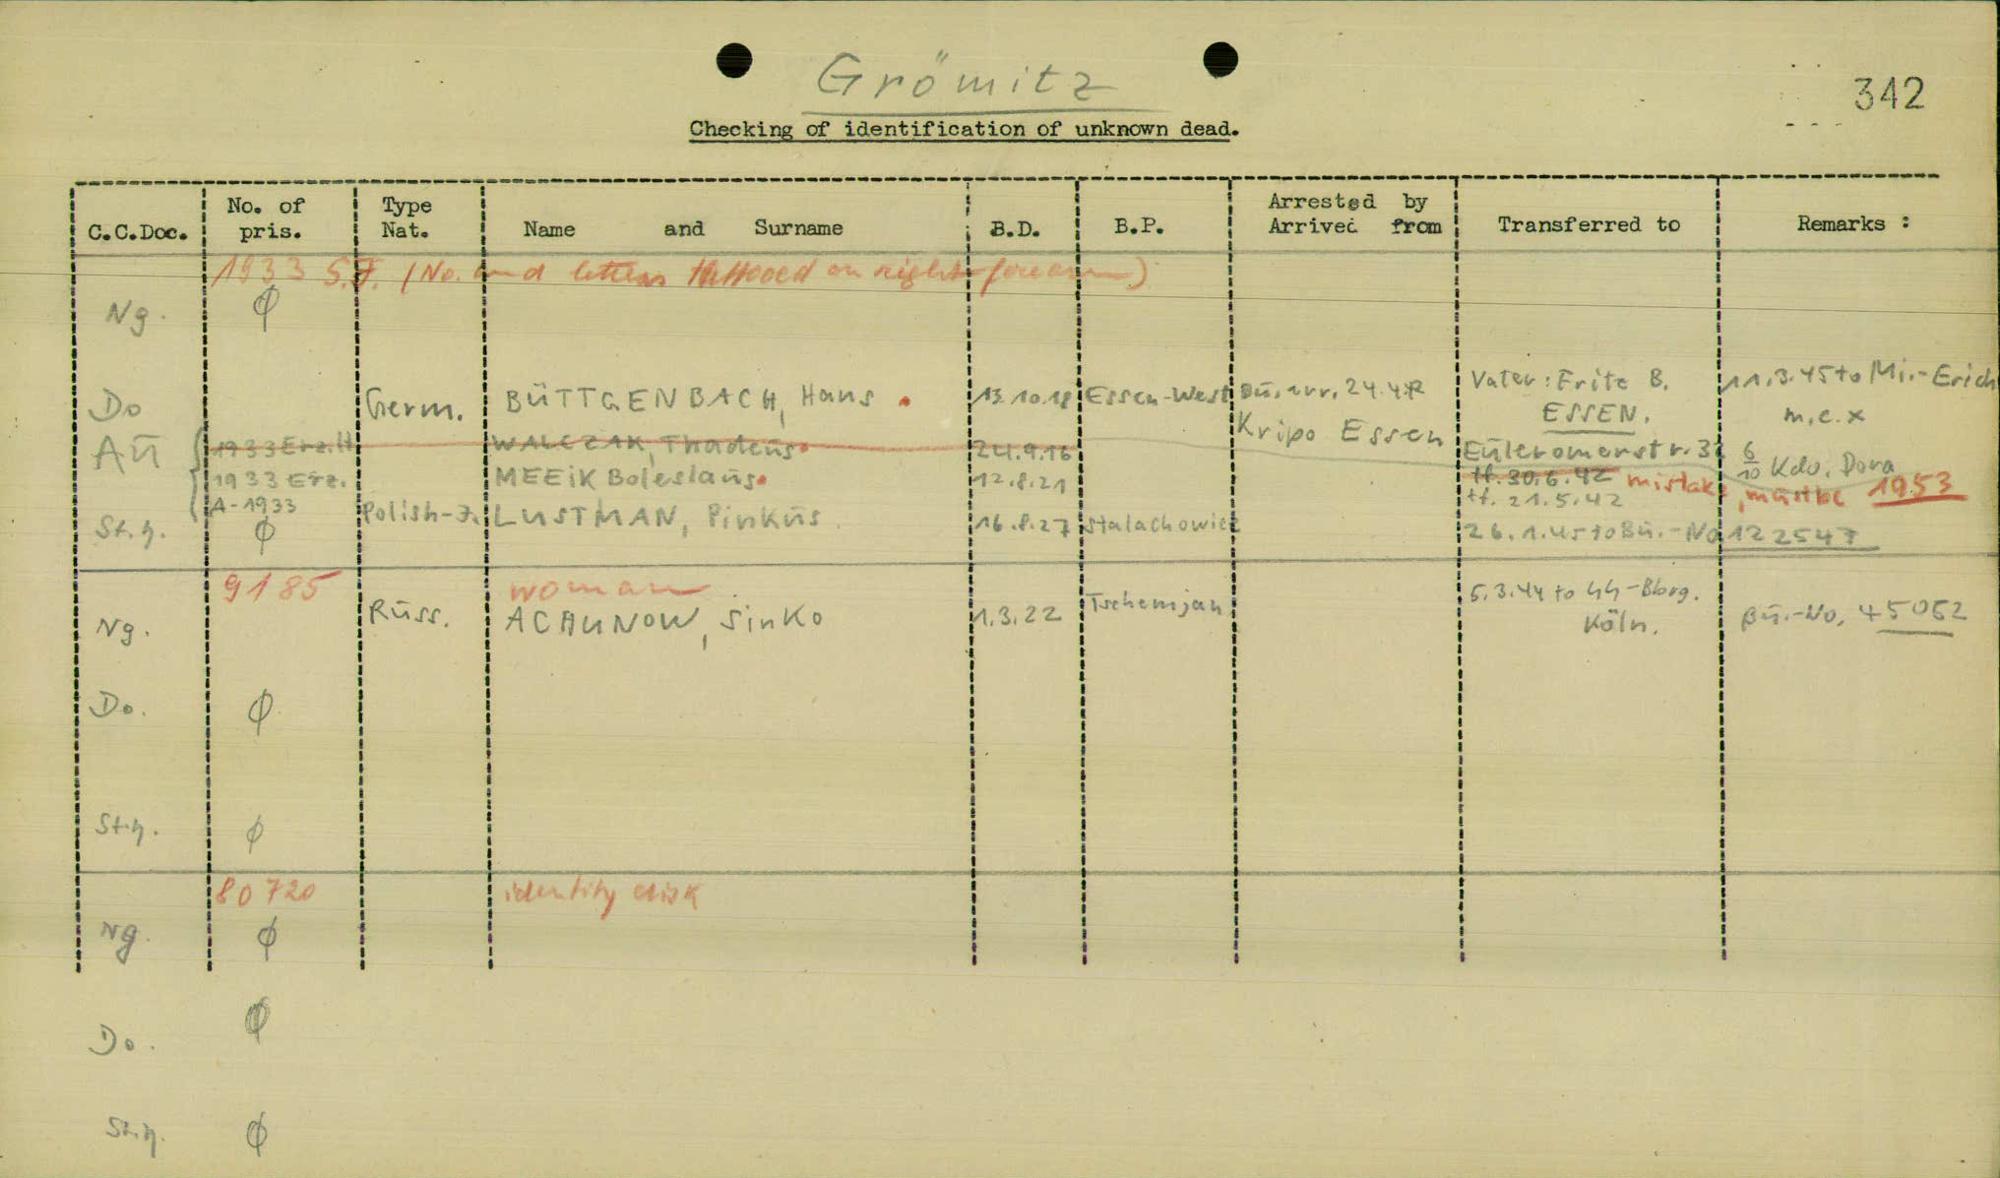 Grömitz
342
Checking of identification of unknown dead.
C.C.Doc. No. of pris. Type Nat. Name and Surname B.D. B.P. Arrested by Arrived from Transferred to Remarks :
1933 S.J. (No. and letters tattooed on right forearm)
Ng. Ø
Do Germ. BÜTTGENBACH, Hans 13.10.18 Essen-West Bu. arr. 24.4. Vater: Fritz B. 11.3.45 to Mi.-Erich
Kripo Essen ESSEN. m.c.x
Aū 1933 Erz. WALCZAK, Thadeus 24.9.16 tf. 30.6.42 mistake, must be 1953
6/10 Kdo. Dora
1933 Erz. MEEIK Boleslaūs 12.8.21 tf. 21.5.42
A-1933 Polish-J. LUSTMAN, Pinkūs 16.8.27 Stalachowicz 26.1.45 to Bū.-No 122547
St.h. Ø
9185 woman
Ng. Rūss. ACHUNOW, Sinko 1.3.22 Tschemjan 5.3.44 to SS-Bbrg. Köln. Bū.-No. 45052
Do. Ø
St.h. Ø
80720 identity disk
Ng. Ø
Do. Ø
St.h. Ø